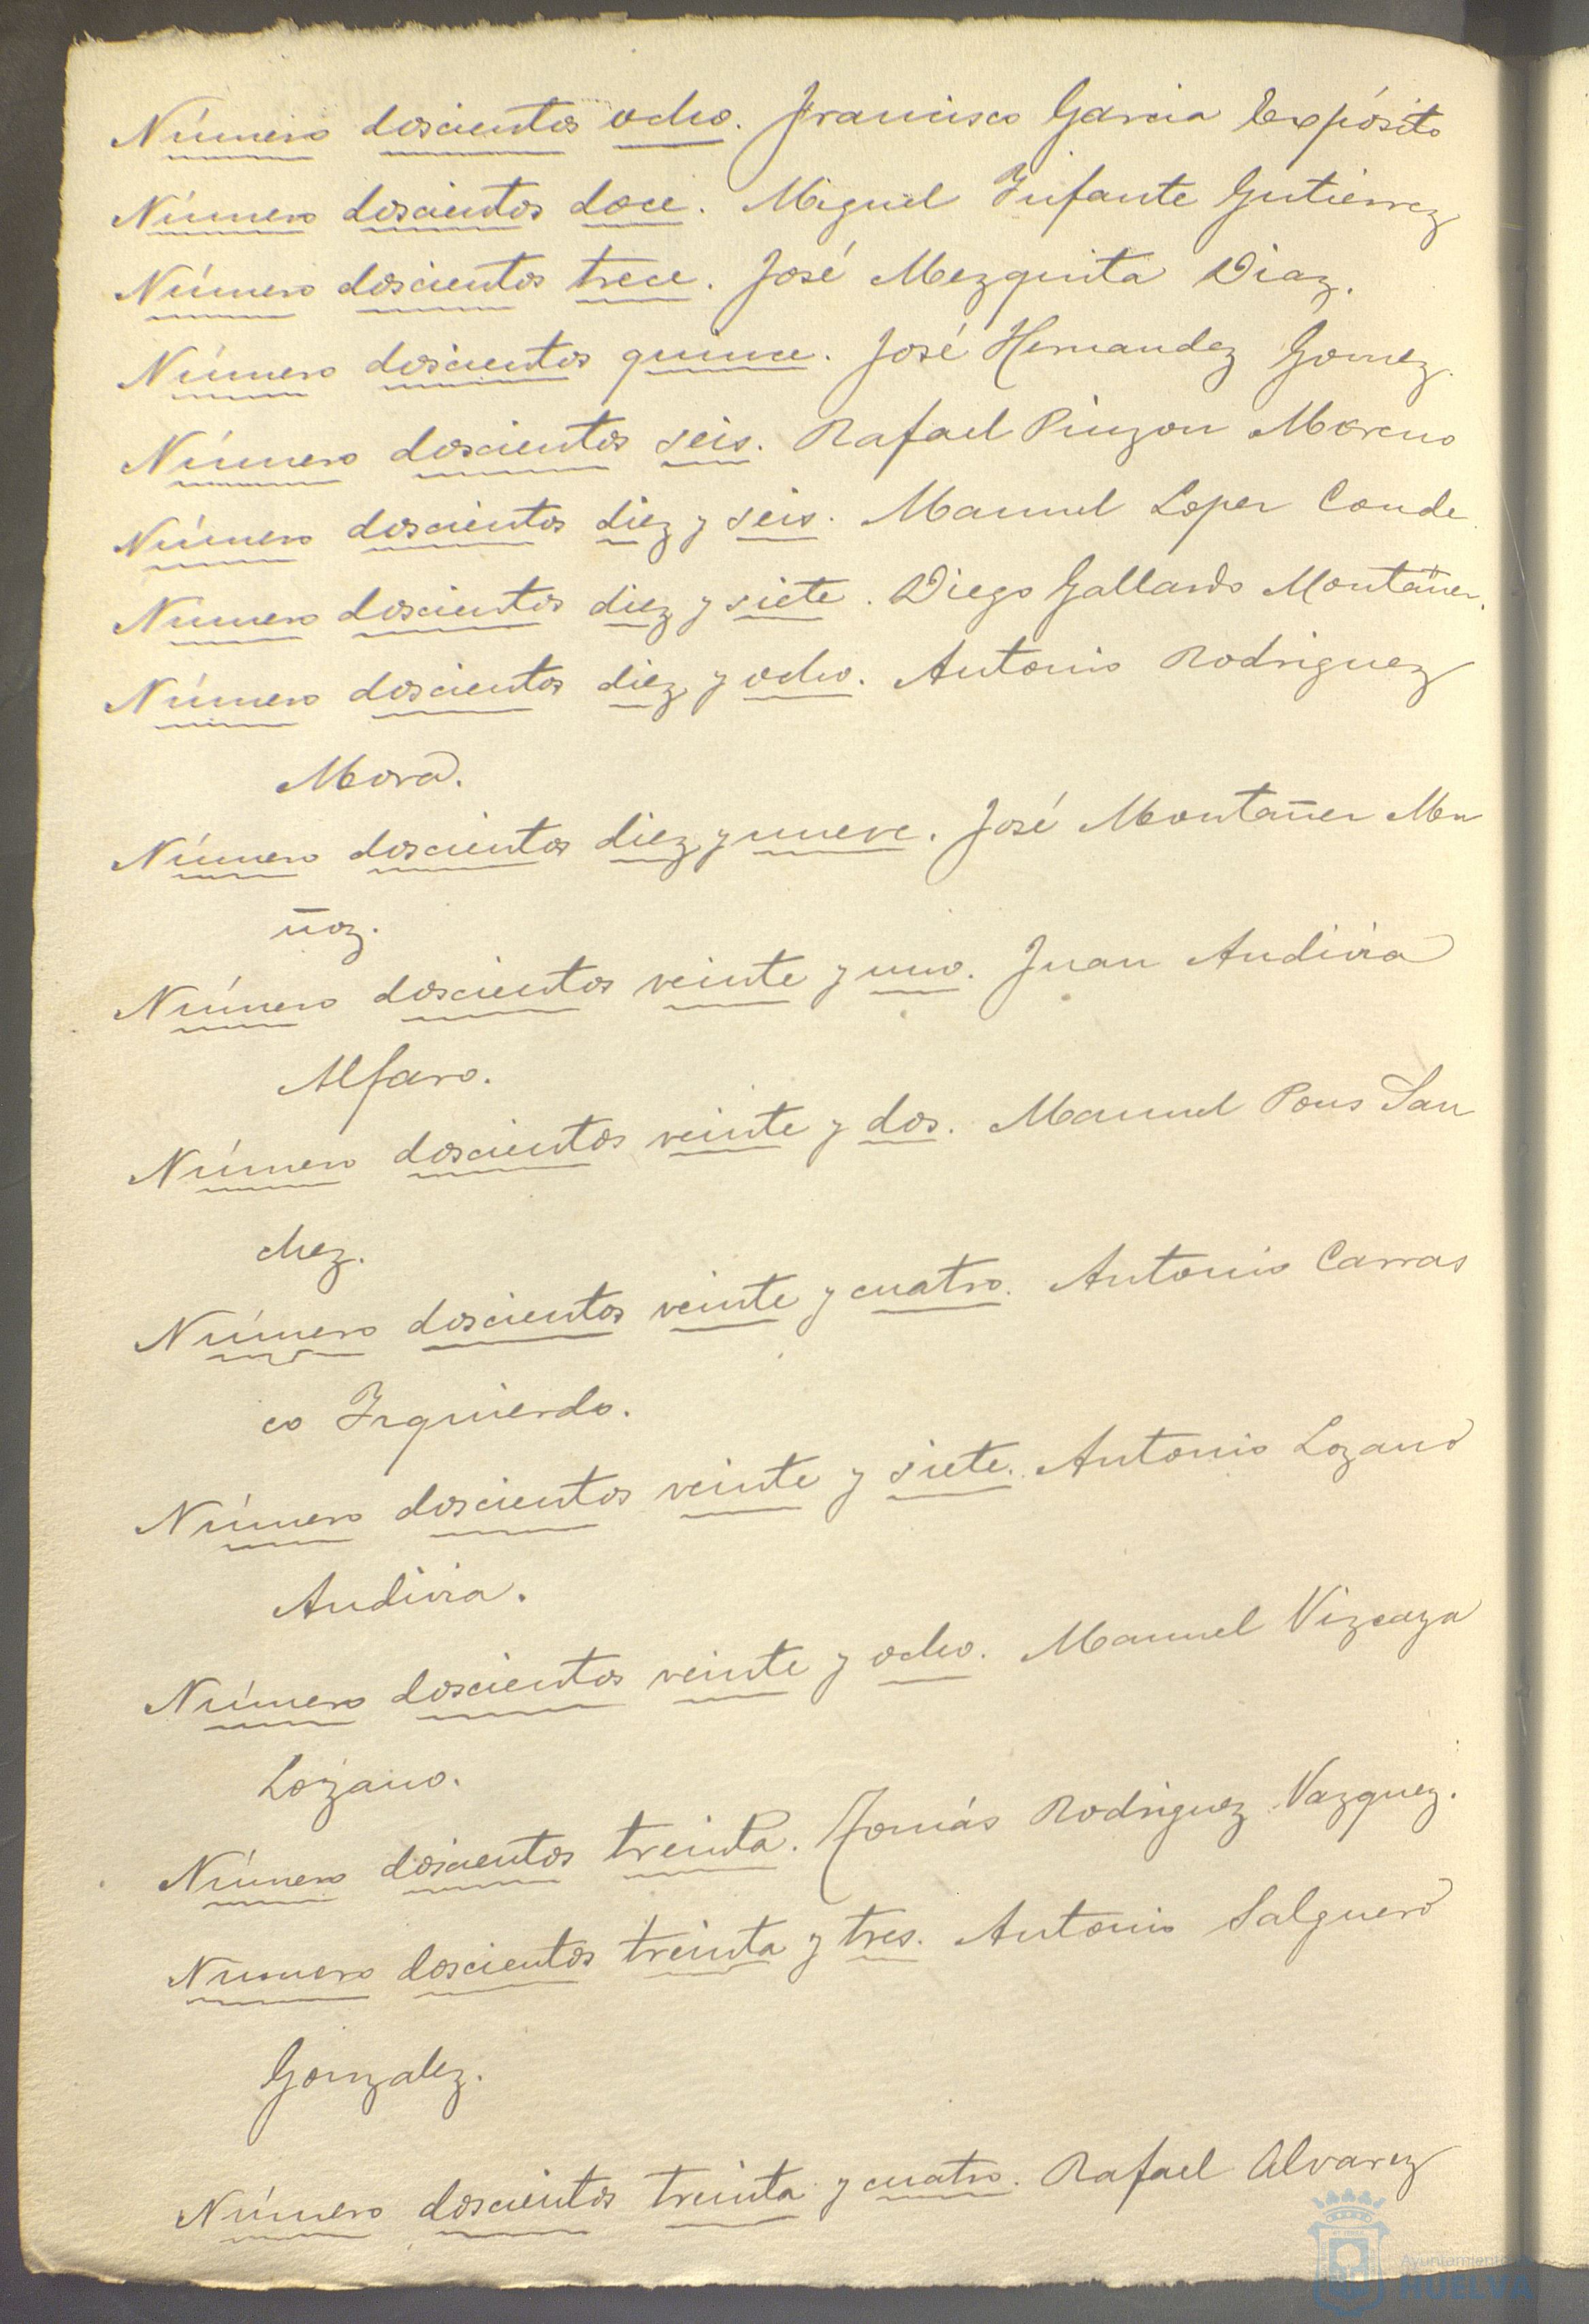 Número doscientos ocho. Francisco Garcia Expósito
Número doscientos doce. Miguel Infante Gutierrez
Número doscientos trece. José Mezquita Diaz.
Número doscientos quince. José Hernandez Gomez.
Número doscientos seis. Rafael Pinzon Moreno
Número doscientos diez y seis. Manuel Loper Conde
Número doscientos diez y siete. Diego Gallardo Montañer.
Número doscientos diez y ocho. Antonio Rodriguez
Mora.
Número doscientos diez y nueve. José Montañer Mu
ñoz.
Número doscientos veinte y uno. Juan Andivia
Alfaro.
Número doscientos veinte y dos. Manuel Pons San
chez.
Número doscientos veinte y cuatro. Antonio Carras
co Izquierdo.
Número doscientos veinte y siete. Antonio Lozano
Andivia.
Número doscientos veinte y ocho. Manuel Vizcaya
Lozano.
Número doscientos treinta. Tomás Rodriguez Vazquez.
Numero doscientos treinta y tres. Antonio Salguero
Gonzalez.
Número doscientos treinta y cuatro. Rafael Alvarez
Ayuntamiento
HUELVA